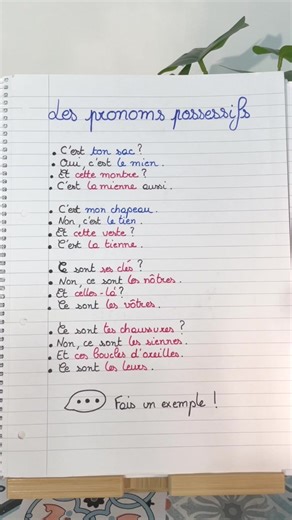 Les pronoms possessifs
• C'est ton sac ?
• Oui, c'est le mien.
• Et cette montre ?
• C'est la mienne aussi.
• C'est mon chapeau.
• Non, c'est le tien.
• Et cette veste ?
• C'est la tienne.
• Ce sont ses clés ?
• Non, ce sont les nôtres.
• Et celles-là ?
• Ce sont les vôtres.
• Ce sont tes chaussures ?
• Non, ce sont les siennes.
• Et ces boucles d'oreilles.
• Ce sont les leurs.
Fais un exemple !